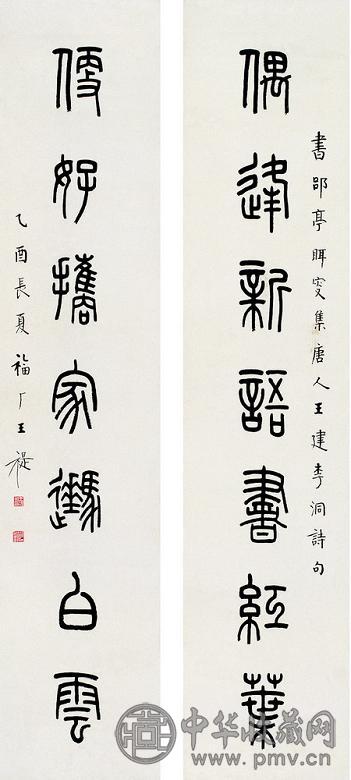 偶逢新語書紅葉
書郘亭眲叟集唐人王建李洞詩句
便好攜家白雲
乙酉長夏福厂王禔
中华收藏网
www.pmv.cn